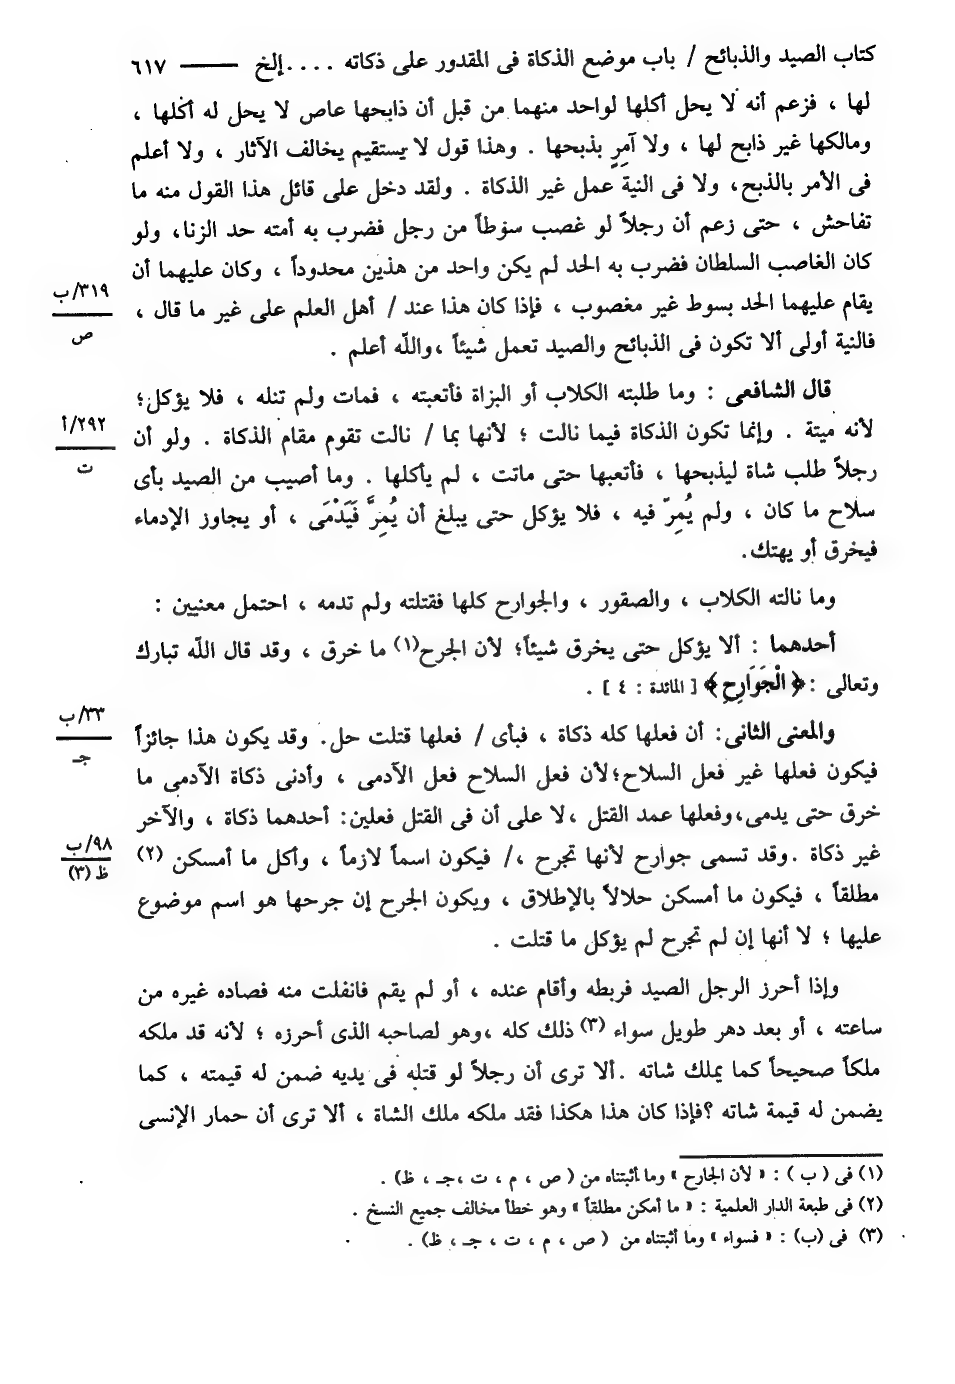 كتاب الصيد والذبائح / باب موضع الذكاة فى المقدور على ذكاته . . . . إلخ ـــــــ ٦١٧
لها ، فزعم أنه لا يحل أكلها لواحد منهما من قبل أن ذابحها عاص لا يحل له أكلها ،
ومالكها غير ذابح لها ، ولا آمِرٍ بذبحها . وهذا قول لا يستقيم يخالف الآثار ، ولا أعلم
فى الأمر بالذبح، ولا فى النية عمل غير الذكاة . ولقد دخل على قائل هذا القول منه ما
تفاحش ، حتى زعم أن رجلاً لو غصب سوطاً من رجل فضرب به أمته حد الزنا، ولو
كان الغاصب السلطان فضرب به الحد لم يكن واحد من هذين محدوداً ، وكان عليهما أن
٣١٩/ب
يقام عليهما الحد بسوط غير مغصوب ، فإذا كان هذا عند / أهل العلم على غير ما قال ،
ص
فالنية أولى ألا تكون فى الذبائح والصيد تعمل شيئاً ،والله أعلم .
قال الشافعى : وما طلبته الكلاب أو البزاة فأتعبته ، فمات ولم تنله ، فلا يؤكل؛
٢٩٢/أ
لأنه ميتة . وإنما تكون الذكاة فيما نالت ؛ لأنها بما / نالت تقوم مقام الذكاة . ولو أن
ت
رجلاً طلب شاة ليذبحها ، فأتعبها حتى ماتت ، لم يأكلها . وما أصيب من الصيد بأى
سلاح ما كان ، ولم يُمِرّ فيه ، فلا يؤكل حتى يبلغ أن يُمِرَّ فَيَدْمَى ، أو يجاوز الإدماء
فيخرق أو يهتك.
وما نالته الكلاب ، والصقور ، والجوارح كلها فقتلته ولم تدمه ، احتمل معنيين :
أحدهما : ألا يؤكل حتى يخرق شيئاً؛ لأن الجرح(١) ما خرق ، وقد قال الله تبارك
وتعالى :﴿ الْجَوَارِحِ ﴾ [ المائدة : ٤ ] .
٣٣/ب
والمعنى الثانى: أن فعلها كله ذكاة ، فبأى / فعلها قتلت حل. وقد يكون هذا جائزاً
جـ
فيكون فعلها غير فعل السلاح؛لأن فعل السلاح فعل الآدمى ، وأدنى ذكاة الآدمى ما
خرق حتى يدمى،وفعلها عمد القتل ،لا على أن فى القتل فعلين: أحدهما ذكاة ، والآخر
٩٨/ب
غير ذكاة .وقد تسمى جوارح لأنها تجرح ،/ فيكون اسماً لازماً ، وأكل ما أمسكن (٢)
ظ (٣)
مطلقاً ، فيكون ما أمسكن حلالاً بالإطلاق ، ويكون الجرح إن جرحها هو اسم موضوع
عليها ؛ لا أنها إن لم تجرح لم يؤكل ما قتلت .
وإذا أحرز الرجل الصيد فربطه وأقام عنده ، أو لم يقم فانفلت منه فصاده غيره من
ساعته ، أو بعد دهر طويل سواء (٣) ذلك كله ،وهو لصاحبه الذى أحرزه ؛ لأنه قد ملكه
ملكاً صحيحاً كما يملك شاته .ألا ترى أن رجلاً لو قتله فى يديه ضمن له قيمته ، كما
يضمن له قيمة شاته ؟فإذا كان هذا هكذا فقد ملكه ملك الشاة ، ألا ترى أن حمار الإنسى
(١) فى ( ب ) : « لأن الجارح » وما أثبتناه من ( ص ، م ، ت ،جـ ، ظ) .
(٢) فى طبعة الدار العلمية : « ما أمكن مطلقاً » وهو خطأ مخالف جميع النسخ .
(٣) فى (ب) : « فسواء » وما أثبتناه من ( ص ، م ، ت ، جـ ، ظ) .